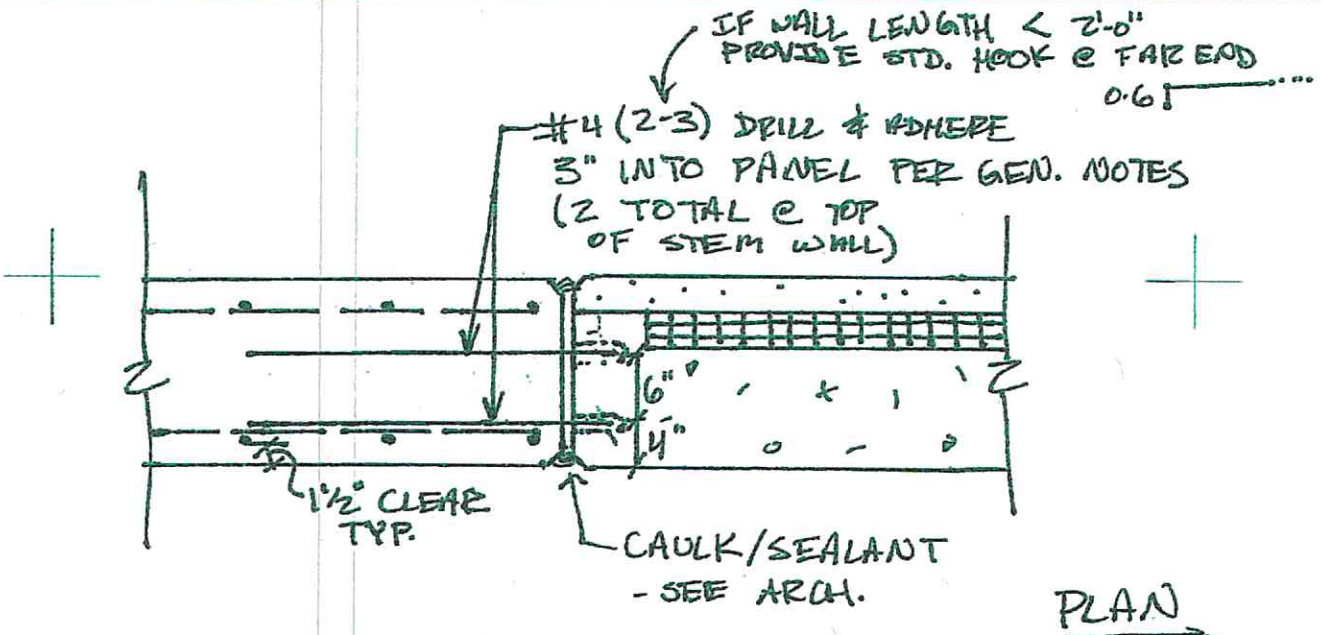 IF WALL LENGTH < 2'-0"
PROVIDE STD. HOOK @ FAR END
0.6
#4 (2-3) DRILL & ADHERE
3" INTO PANEL PER GEN. NOTES
(2 TOTAL @ TOP
OF STEM WALL)
6"
4"
1½" CLEAR
TYP.
CAULK/SEALANT
- SEE ARCH.
PLAN